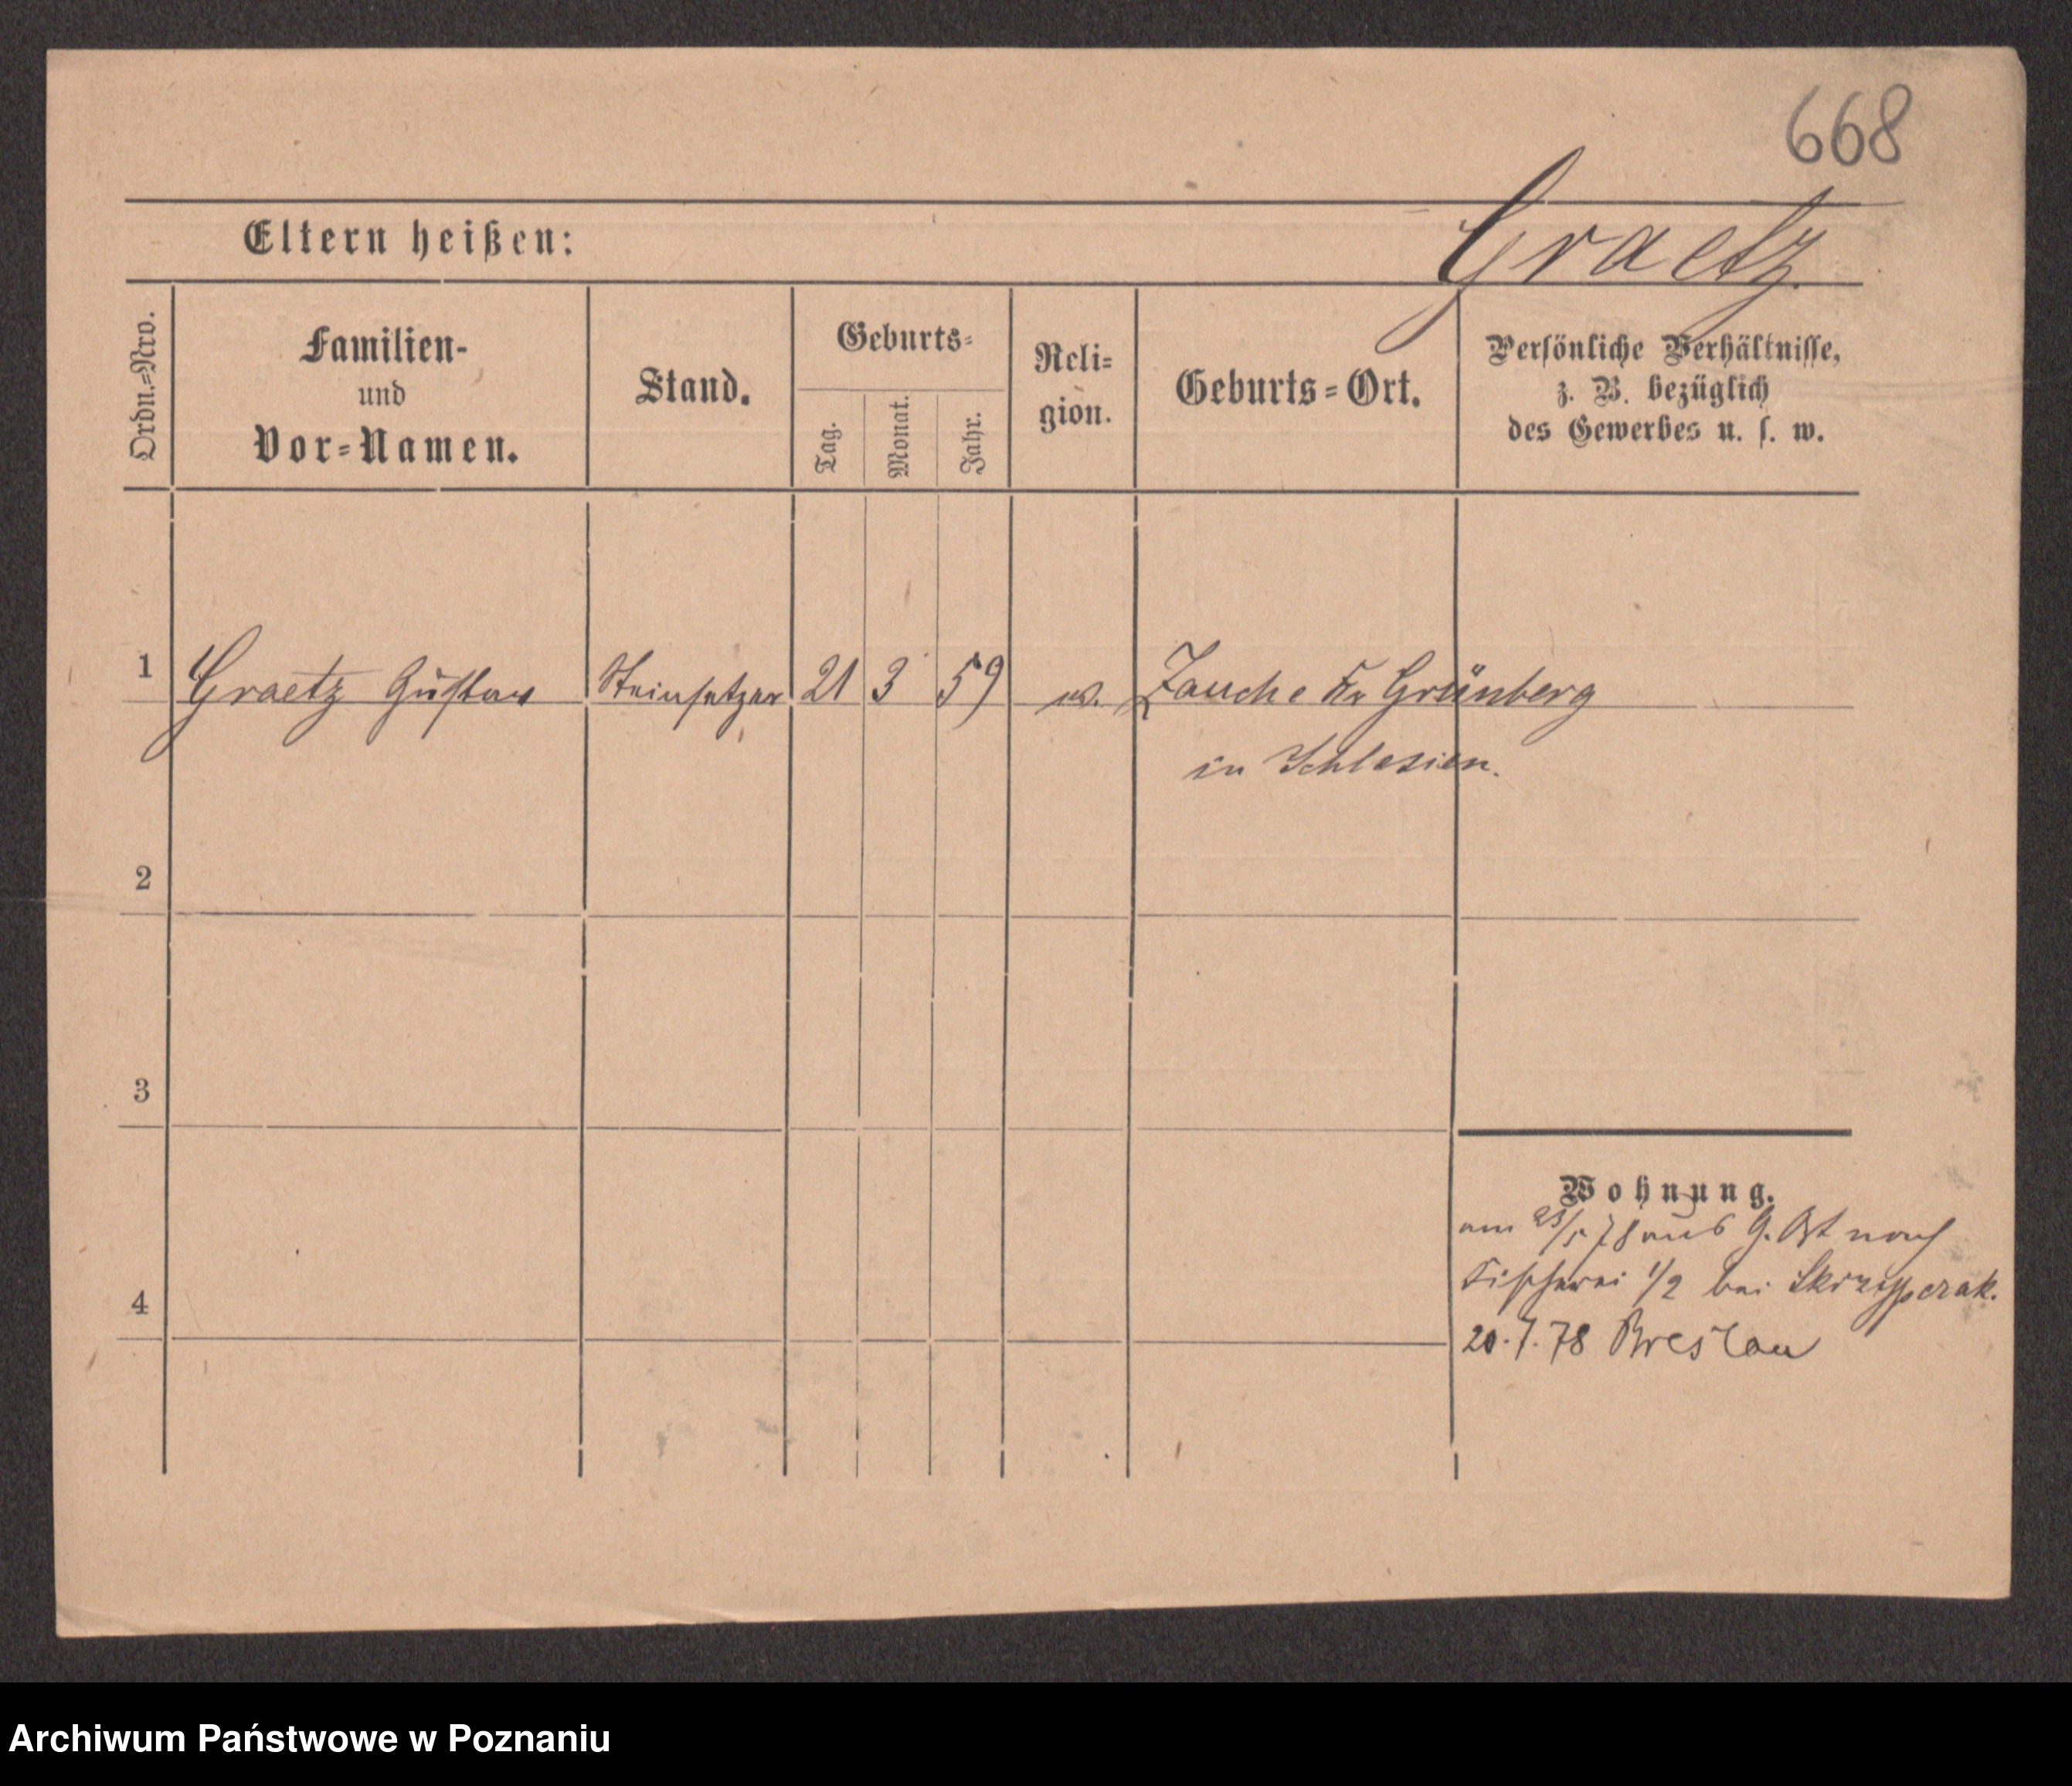 668
Graetz.
Eltern heißen:
Ordn.=Nro.
Familien-
und
Vor=Namen.
Stand.
Geburts=
Tag.
Monat.
Jahr.
Reli=
gion.
Geburts=Ort.
Persönliche Verhältnisse,
z. B. bezüglich
des Gewerbes u. s. w.
1 Graetz Gustav Steinsetzer 21 3 59 Zauche Kr Grünberg
in Schlesien.
2
3
4
Wohnung.
am 23/5 78 aus G. Ost nach
Fischerei 1/2 bei
20.7.78 Breslau
Archiwum Państwowe w Poznaniu